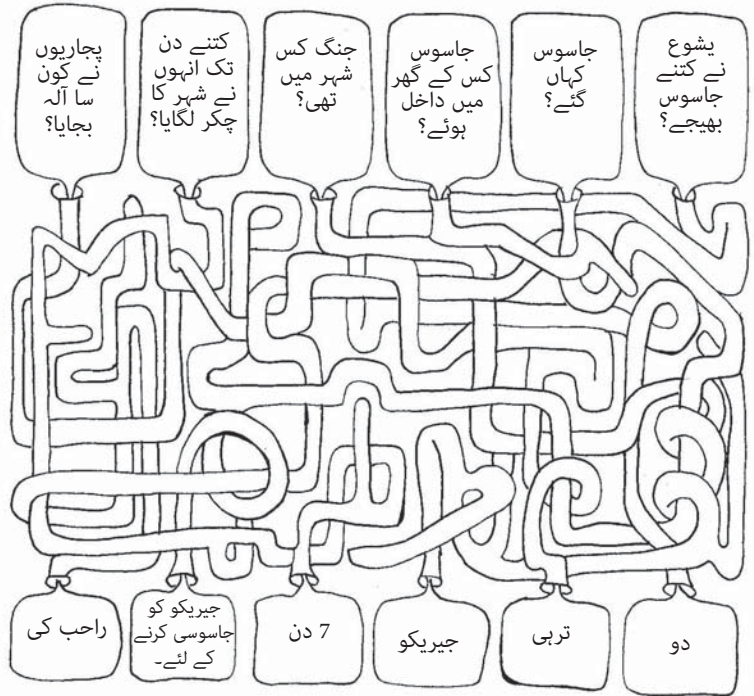 یشوع
نے کتنے
جاسوس
بھیجے؟
جاسوس
کہاں
گئے؟
جاسوس
کس کے گھر
میں داخل
ہوئے؟
جنگ کس
شہر میں
تھی؟
کتنے دن
تک انہوں
نے شہر کا
چکر لگایا؟
پجاریوں
نے کون
سا آلہ
بجایا؟
دو
ترہی
جیریکو
7 دن
جیریکو کو
جاسوسی کرنے
کے لئے۔
راحب کی